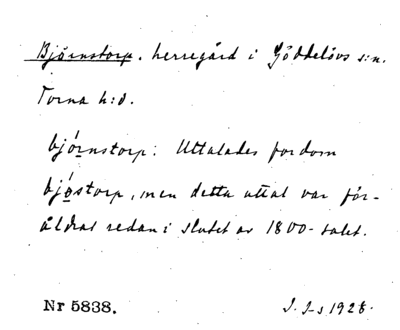 Björnstorp. herregård i Gödelövs s:n.
Torna h:d.
bjórnstorp: Uttalades fordom
bjǿstorp, men detta uttal var för-
åldrat redan i slutet av 1800-talet.
Nr 5838.
I. I-s 1928.